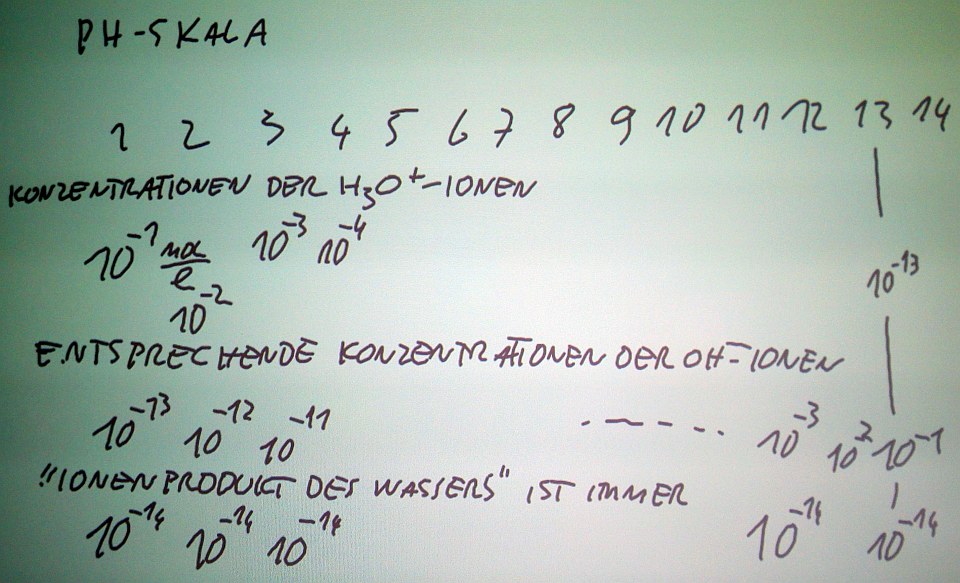 PH-SKALA
1 2 3 4 5 6 7 8 9 10 11 12 13 14
KONZENTRATIONEN DER H₃O⁺-IONEN
10⁻¹ mol/l 10⁻³ 10⁻⁴ 10⁻¹³
10⁻²
ENTSPRECHENDE KONZENTRATIONEN DER OH⁻-IONEN
10⁻¹³ 10⁻¹² 10⁻¹¹ . - - - - . 10⁻³ 10² 10⁻¹
"IONENPRODUKT DES WASSERS" IST IMMER
10⁻¹⁴ 10⁻¹⁴ 10⁻¹⁴ 10⁻¹⁴ 10⁻¹⁴